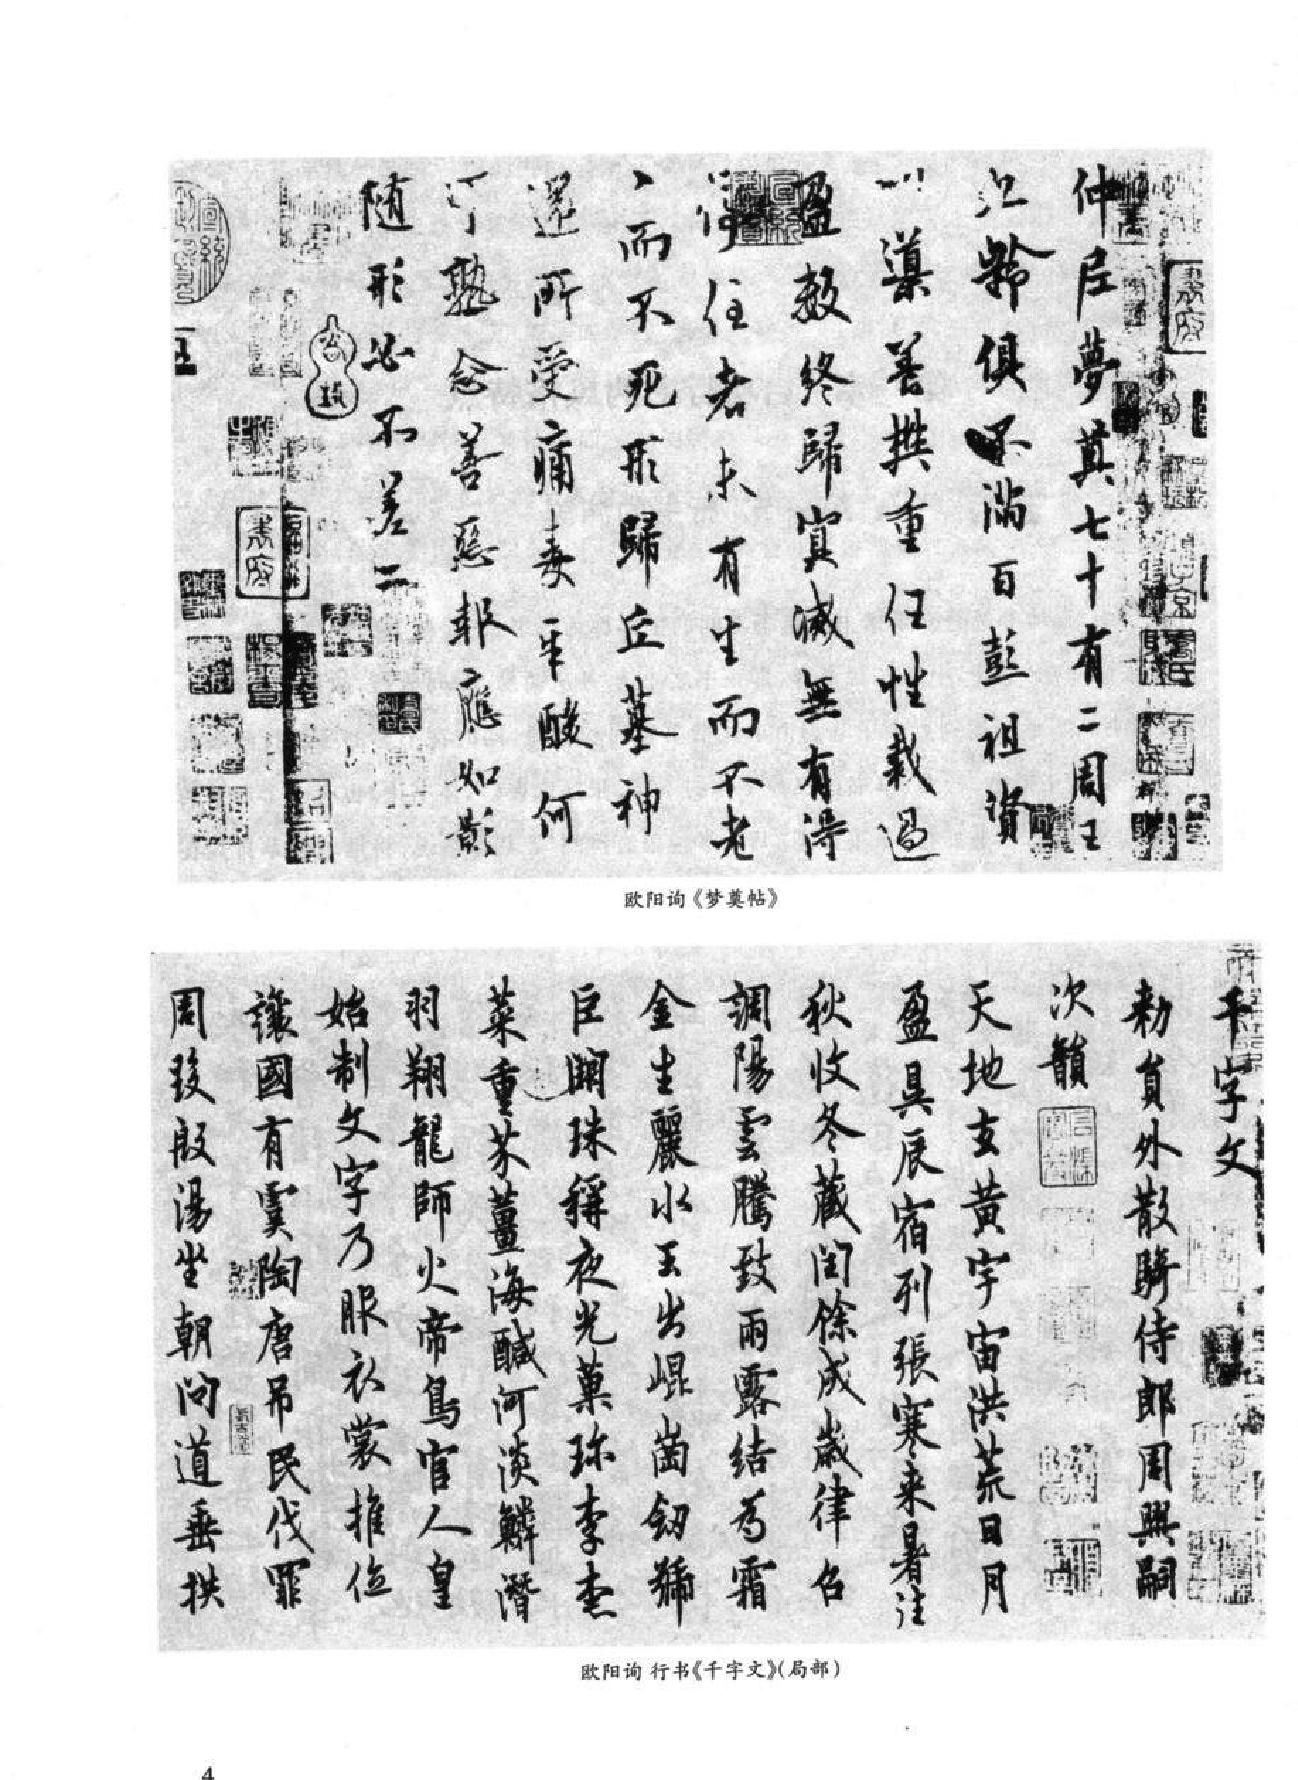 仲尼夢奠七十有二周王
九齡俱不滿百彭祖資
以導養樊重任性裁過
盈數終歸冥滅無有得
停住者未有生而不老
人而不死形歸丘墓神
還所受痛毒辛酸何
可熟念善惡報應如影
随形必不差二
欧阳询《梦奠帖》
千字文
勑員外散騎侍郎周興嗣
次韻
天地玄黃宇宙洪荒日月
盈昃辰宿列張寒来暑往
秋收冬藏閏餘成歲律召
調陽雲騰致雨露結為霜
金生麗水玉出崐崗劒號
巨闕珠稱夜光菓珎李柰
菜重芥薑海醎河淡鱗潛
羽翔龍師火帝鳥官人皇
始制文字乃服衣裳推位
讓國有虞陶唐吊民伐罪
周發殷湯坐朝問道垂拱
欧阳询 行书《千字文》(局部)
4